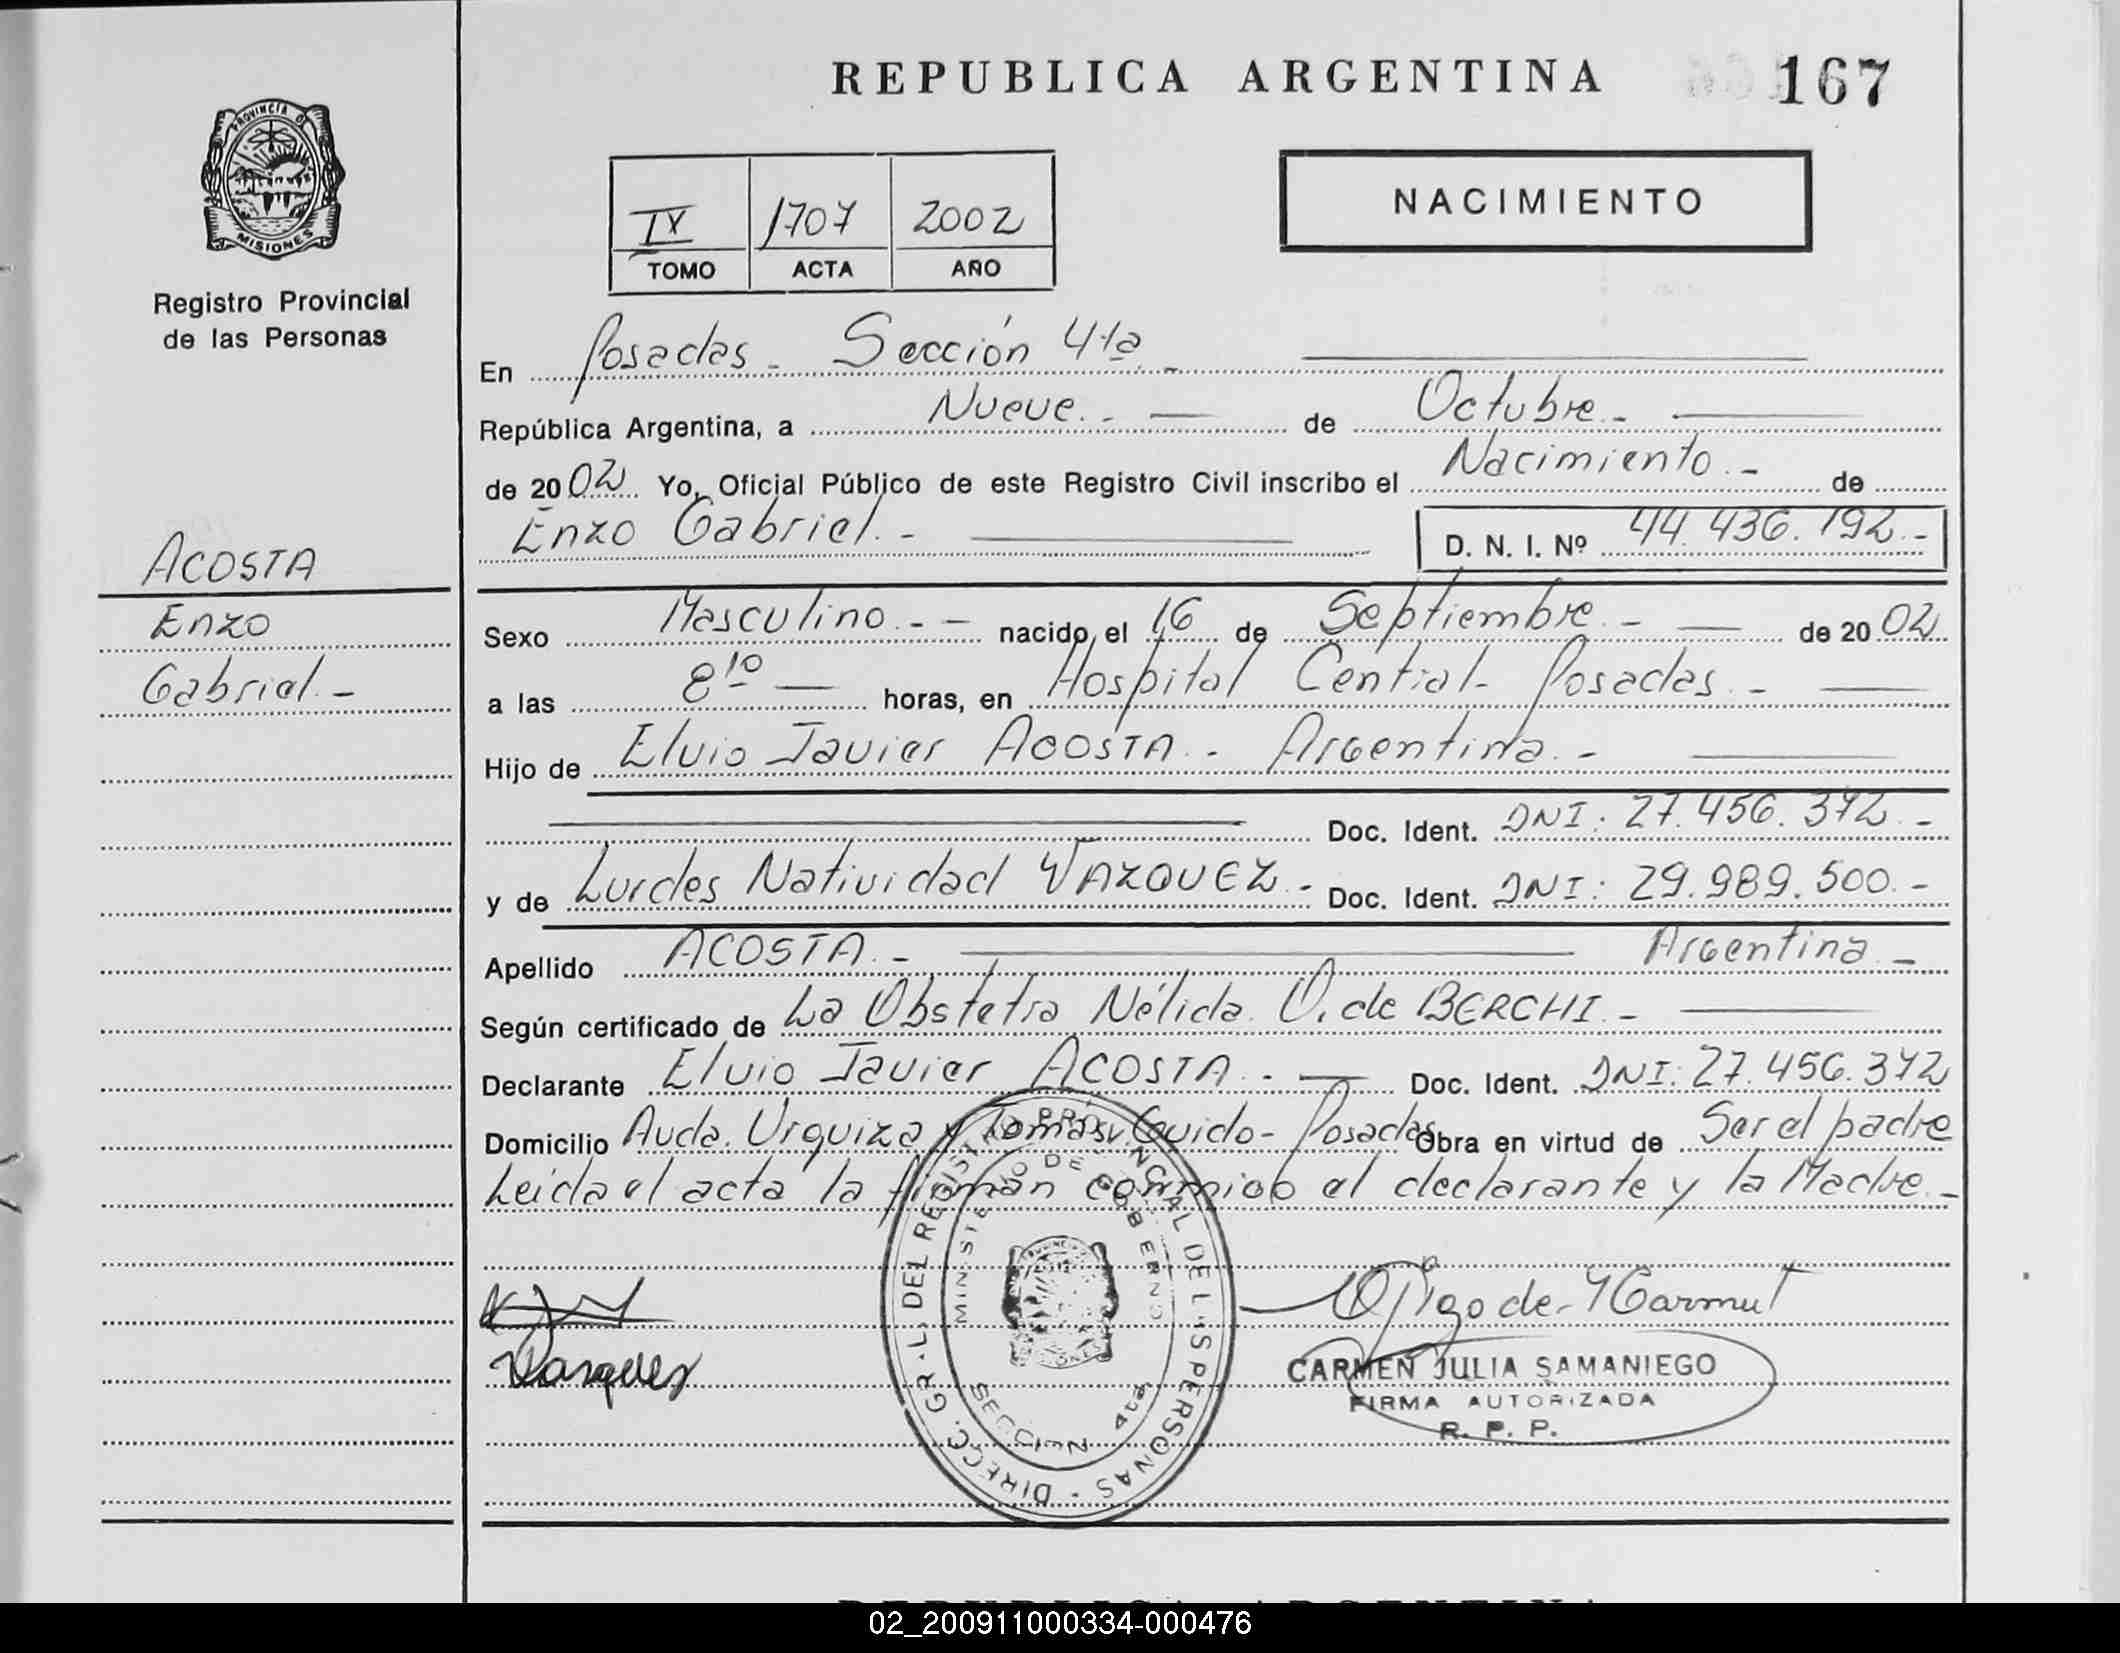 REPUBLICA ARGENTINA 167
PROVINCIA DE
MISIONES
Registro Provincial
de las Personas
NACIMIENTO
IX 1707 2002
TOMO ACTA AÑO
En Posadas - Sección 4ta -
República Argentina, a Nueve.- de Octubre.-
de 2002 Yo, Oficial Público de este Registro Civil inscribo el Nacimiento.- de
Enzo Gabriel.- D. N. I. Nº 44.436.192.-
ACOSTA
Enzo
Gabriel.-
Sexo Masculino.- - nacido el 16 de Septiembre.- de 2002
a las 8 10 horas, en Hospital Central - Posadas.-
Hijo de Elvio Javier ACOSTA.- Argentina.-
Doc. Ident. DNI: 27.456.372.-
y de Lurdes Natividad VAZQUEZ.- Doc. Ident. DNI: 29.989.500.-
Apellido ACOSTA.- Argentina.-
Según certificado de La Obstetra Nélida O. de BERCHI.-
Declarante Elvio Javier ACOSTA.- Doc. Ident. DNI: 27.456.372
Domicilio Avda. Urquiza y Tomás Guido - Posadas Obra en virtud de Ser el padre
Leida el acta la firman conmigo el declarante y la Madre.-
DIRECC. GRAL. DEL REGISTRO PROVINCIAL DE LAS PERSONAS
MINISTERIO DE GOBIERNO
SECCION 4ta
Vazquez
CARMEN JULIA SAMANIEGO
FIRMA AUTORIZADA
R. P. P.
REPUBLICA ARGENTINA
02_200911000334-000476